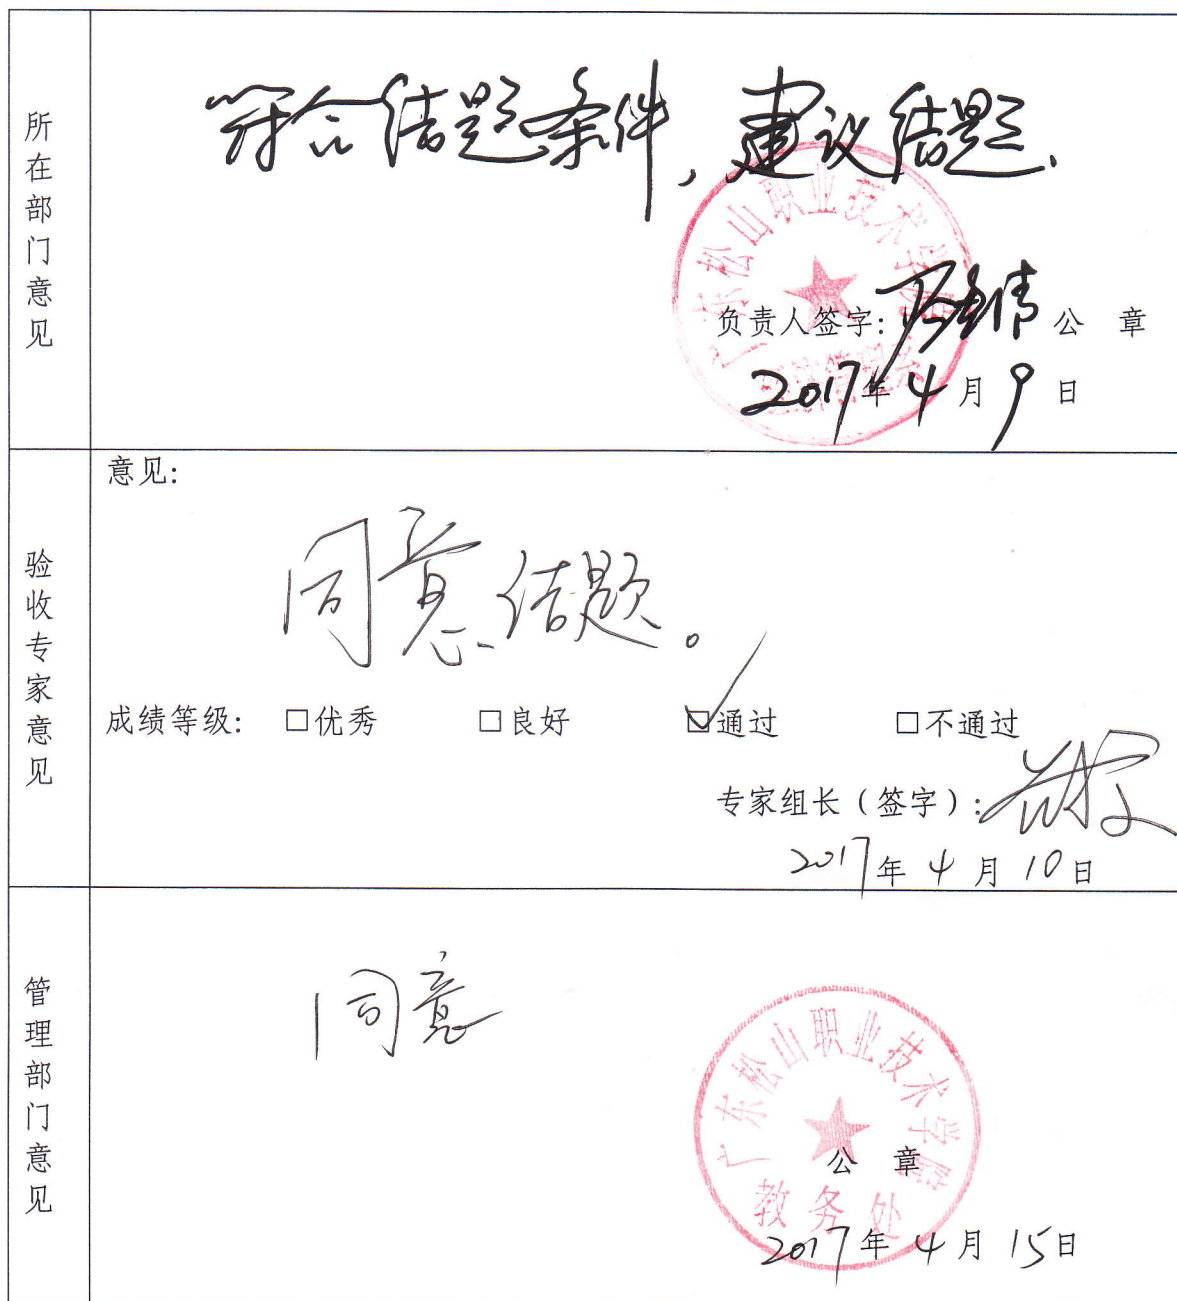 所在部门意见
符合结题条件，建议结题.
广东松山职业技术学院
负责人签字： 公 章
2017年4月9日
验收专家意见
意见：
同意结题。
成绩等级： □优秀 □良好 ☑通过 □不通过
专家组长（签字）：
2017年4月10日
管理部门意见
同意
广东松山职业技术学院
公 章
教务处
2017年4月15日